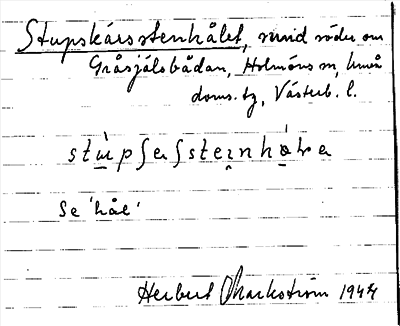 Stupskärsstenhålet, sund söder om
Gråsjälsbådan, Holmöns sn, Umeå
doms. tg, Västerb. l.
Se 'hål'
Herbert Markström 1944